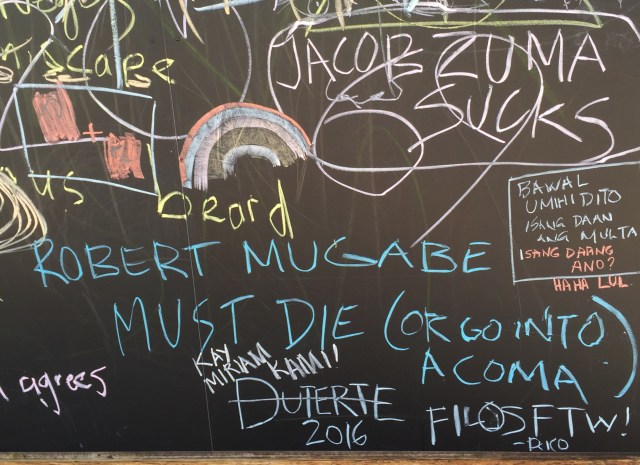 JACOB ZUMA
SUCKS
us
beard
BAWAL
UMIHI DITO
ISANG DAAN
ANG MULTA
ISANG DAANG
ANO?
HAHA LUL
ROBERT MUGABE
MUST DIE (OR GO INTO
A COMA)
agrees
KAY
MIRIAM KAMI!
DUTERTE
2016
FILOS FTW!
-RICO